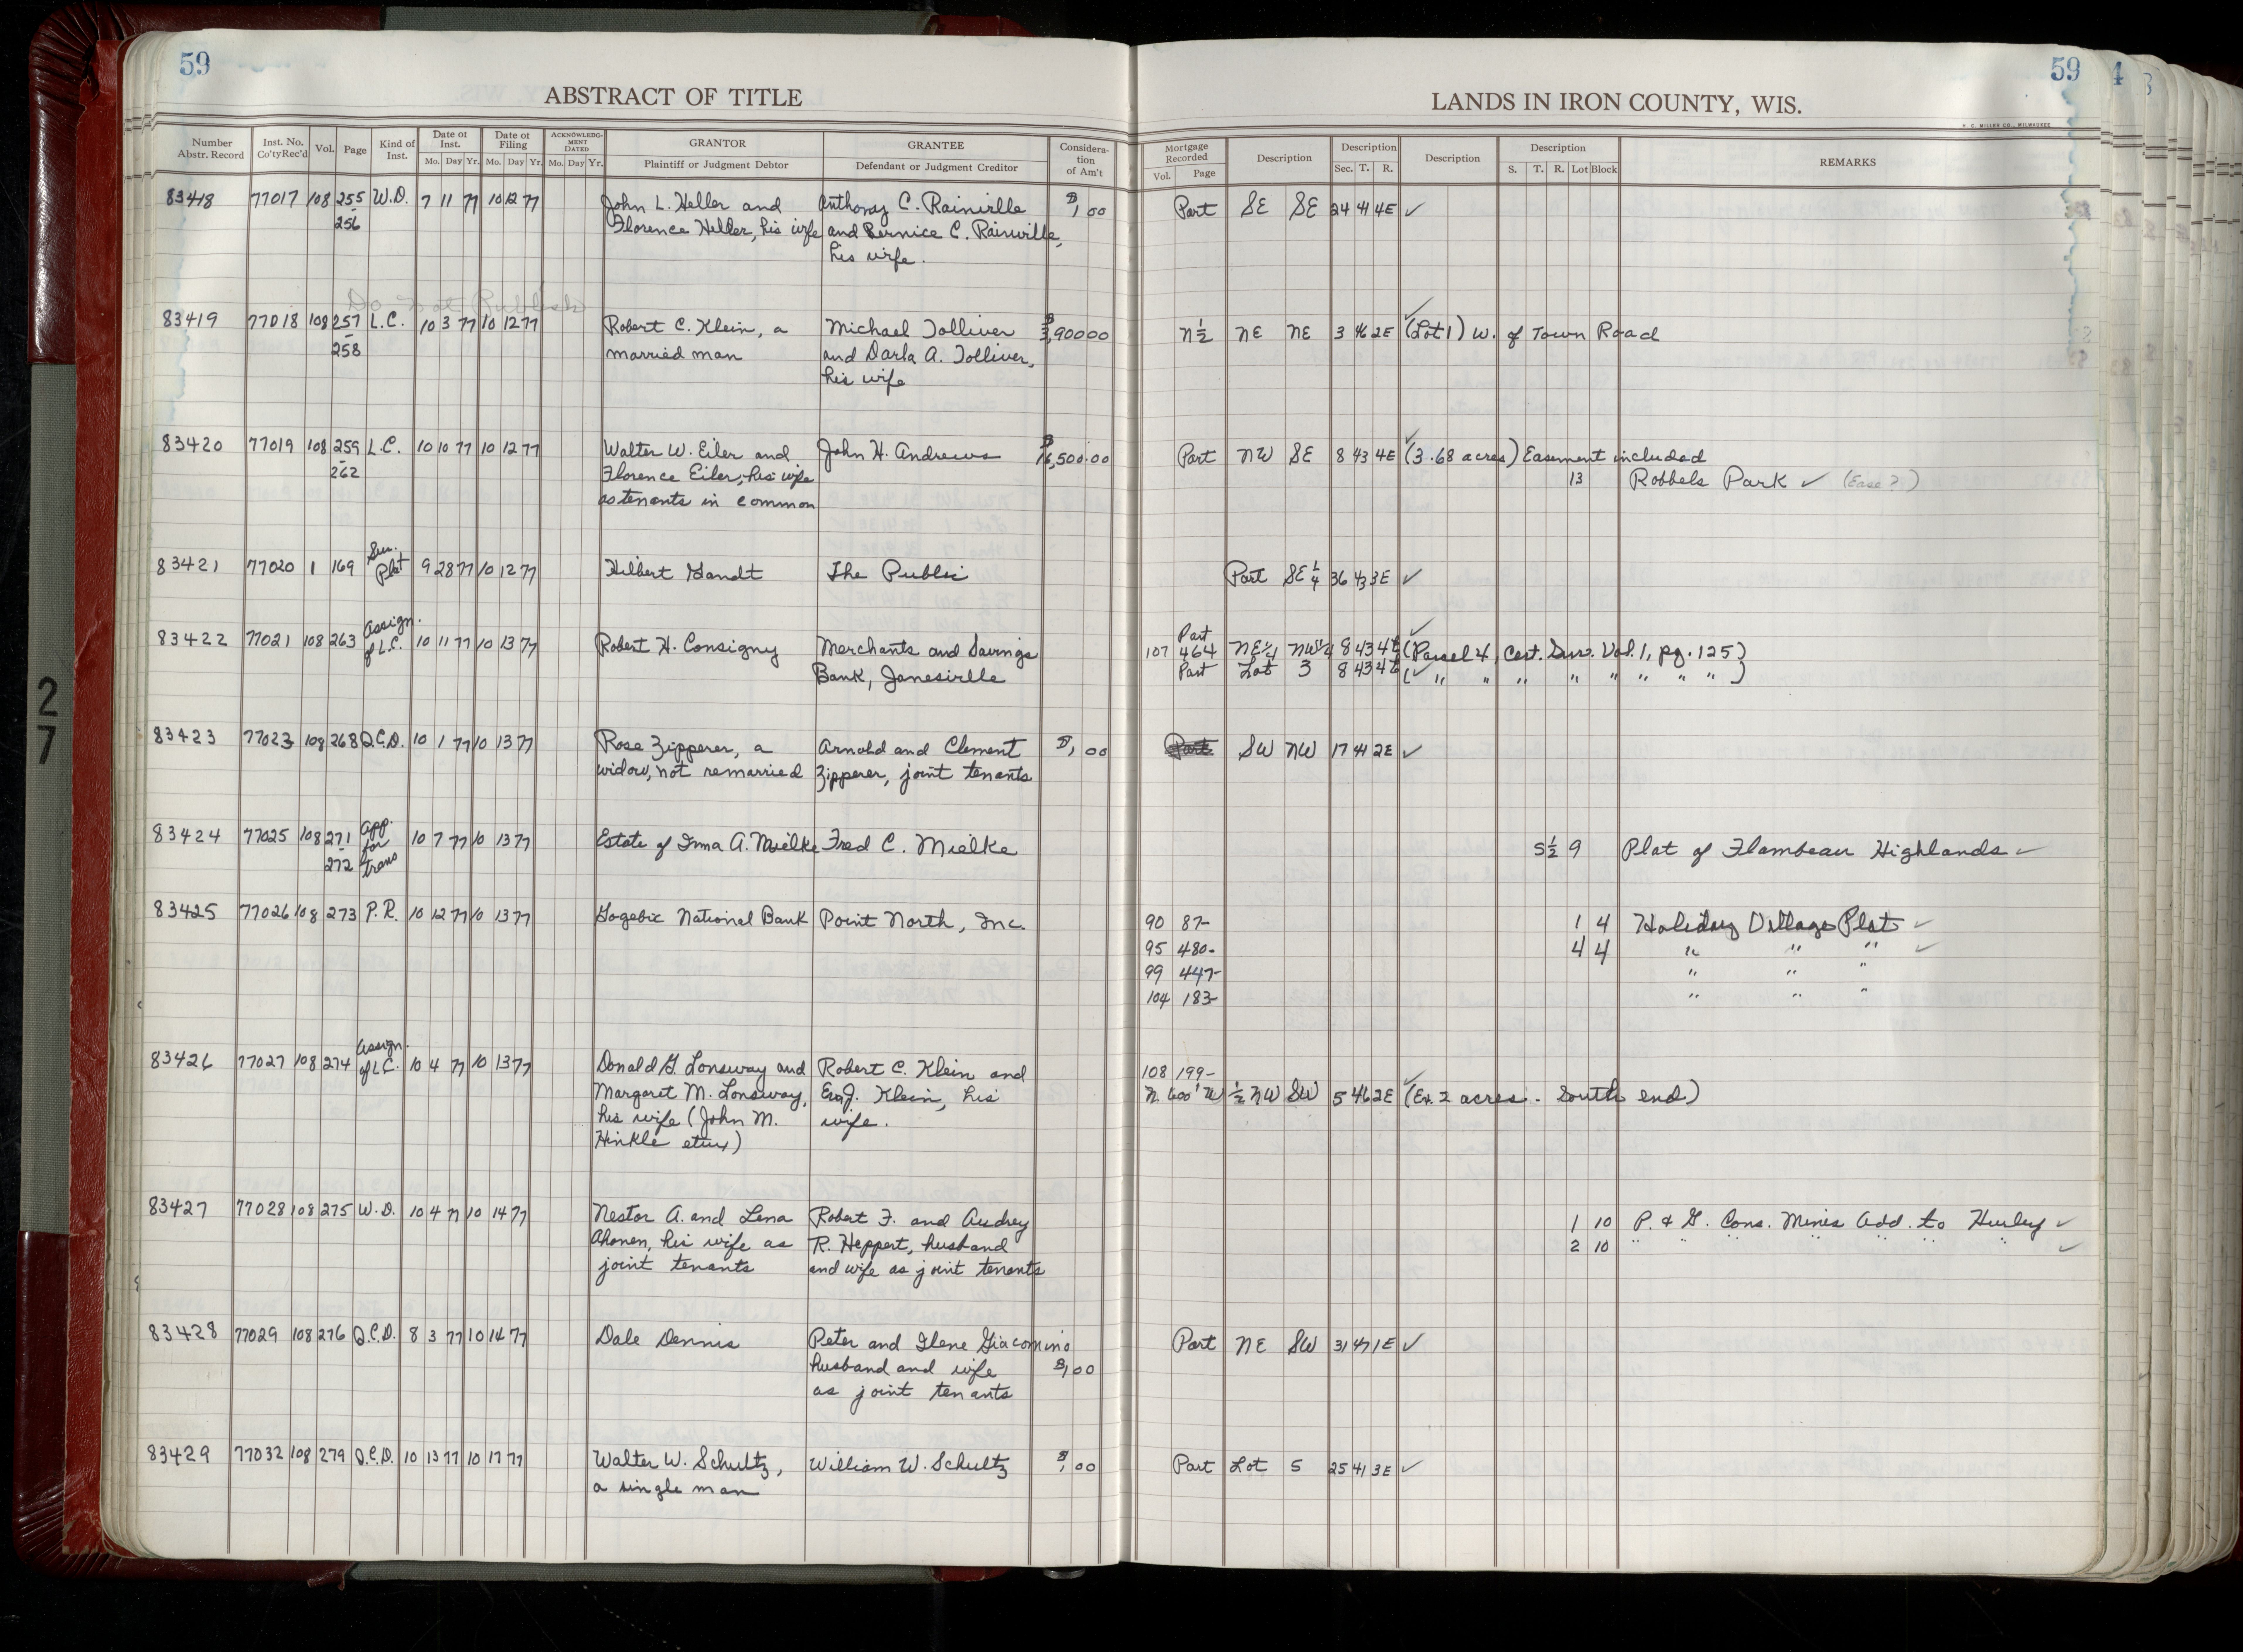 59
ABSTRACT OF TITLE
Number Abstr. Record Inst. No. Co'ty Rec'd Vol. Page Kind of Inst. Date of Inst. Mo. Day Yr. Date of Filing Mo. Day Yr. ACKNOWLEDGMENT DATED Mo. Day Yr. GRANTOR Plaintiff or Judgment Debtor GRANTEE Defendant or Judgment Creditor Consideration of Am't
59
LANDS IN IRON COUNTY, WIS.
H. C. MILLER CO., MILWAUKEE
Mortgage Recorded Vol. Page Description Description Sec. T. R. Description Description S. T. R. Lot Block REMARKS
83418 77017 108 255 W.D. 7 11 77 10 12 77 John L. Heller and Anthony C. Rainville $1,00 Part SE SE 24 41 4E ✓
256 Florence Heller, his wife and Bernice C. Rainville,
his wife.
Do not Publish
83419 77018 108 257 L.C. 10 3 77 10 12 77 Robert C. Klein, a Michael Tolliver $3,90000 N½ NE NE 3 46 2E (Lot 1) W. of Town Road
258 married man and Darla A. Tolliver,
his wife
83420 77019 108 259 L.C. 10 10 77 10 12 77 Walter W. Eiler and John H. Andrews $16,500.00 Part NW SE 8 43 4E (3.68 acres) Easement included
262 Florence Eiler, his wife 13 Robbels Park ✓ (Ease?)
as tenants in common
83421 77020 1 169 Sur. Plat 9 28 77 10 12 77 Hilbert Gandt The Public Part SE¼ 36 43 3E ✓
83422 77021 108 263 Assign. of L.C. 10 11 77 10 13 77 Robert H. Consigny Merchants and Savings 107 464 Part NE¼ NW¼ 8 43 4E (Parcel 4, Cert. Surv. Vol. 1, pg. 125)
Bank, Janesville Part Lot 3 8 43 4E ( " " " " " " " " )
83423 77023 108 268 Q.C.D. 10 1 77 10 13 77 Rose Zipperer, a Arnold and Clement $1,00 Part SW NW 17 41 2E ✓
widow, not remarried Zipperer, joint tenants
83424 77025 108 271 App. for trans 10 7 77 10 13 77 Estate of Irma A. Mielke Fred C. Mielke S½ 9 Plat of Flambeau Highlands ✓
272
83425 77026 108 273 P.R. 10 12 77 10 13 77 Gogebic National Bank Point North, Inc. 90 87- 1 4 Holiday Village Plat ✓
95 480- 4 4 " " " ✓
99 447- " " "
104 183- " " "
83426 77027 108 274 Assign. of L.C. 10 4 77 10 13 77 Donald G. Lonsway and Robert C. Klein and 108 199-
Margaret M. Lonsway, Eva J. Klein, his N. 600' W ½ NW SW 5 46 2E (Ex. 2 acres. South end)
his wife (John M. wife.
Hinkle etux)
83427 77028 108 275 W.D. 10 4 77 10 14 77 Nestor A. and Lena Robert F. and Audrey 1 10 P. & G. Cons. Mines Add. to Hurley ✓
Ahonen, his wife as R. Heppert, husband 2 10 " " " " " " " ✓
joint tenants and wife as joint tenants
83428 77029 108 276 Q.C.D. 8 3 77 10 14 77 Dale Dennis Peter and Ilene Giacomino Part NE SW 31 47 1E ✓
husband and wife $1,00
as joint tenants
83429 77032 108 279 Q.C.D. 10 13 77 10 17 77 Walter W. Schultz, William W. Schultz $1,00 Part Lot 5 25 41 3E ✓
a single man
27